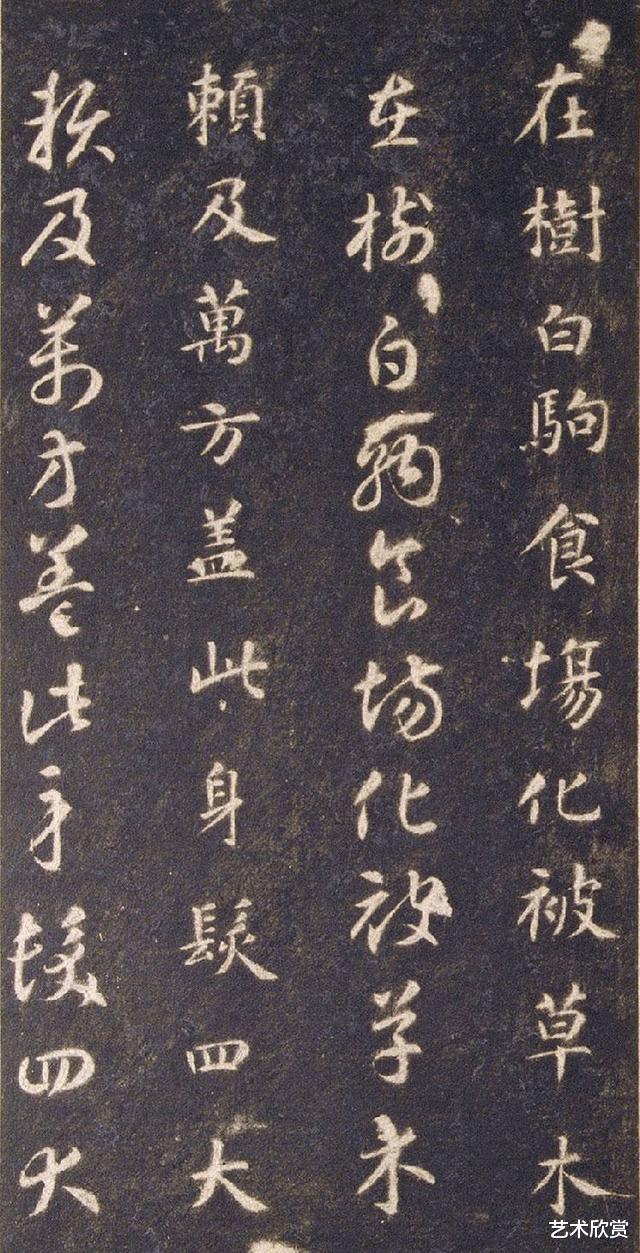 在樹白駒食場化被草木
在樹白駒食場化被草木
賴及萬方盖此身髮四大
賴及萬方盖此身髮四大
艺术欣赏